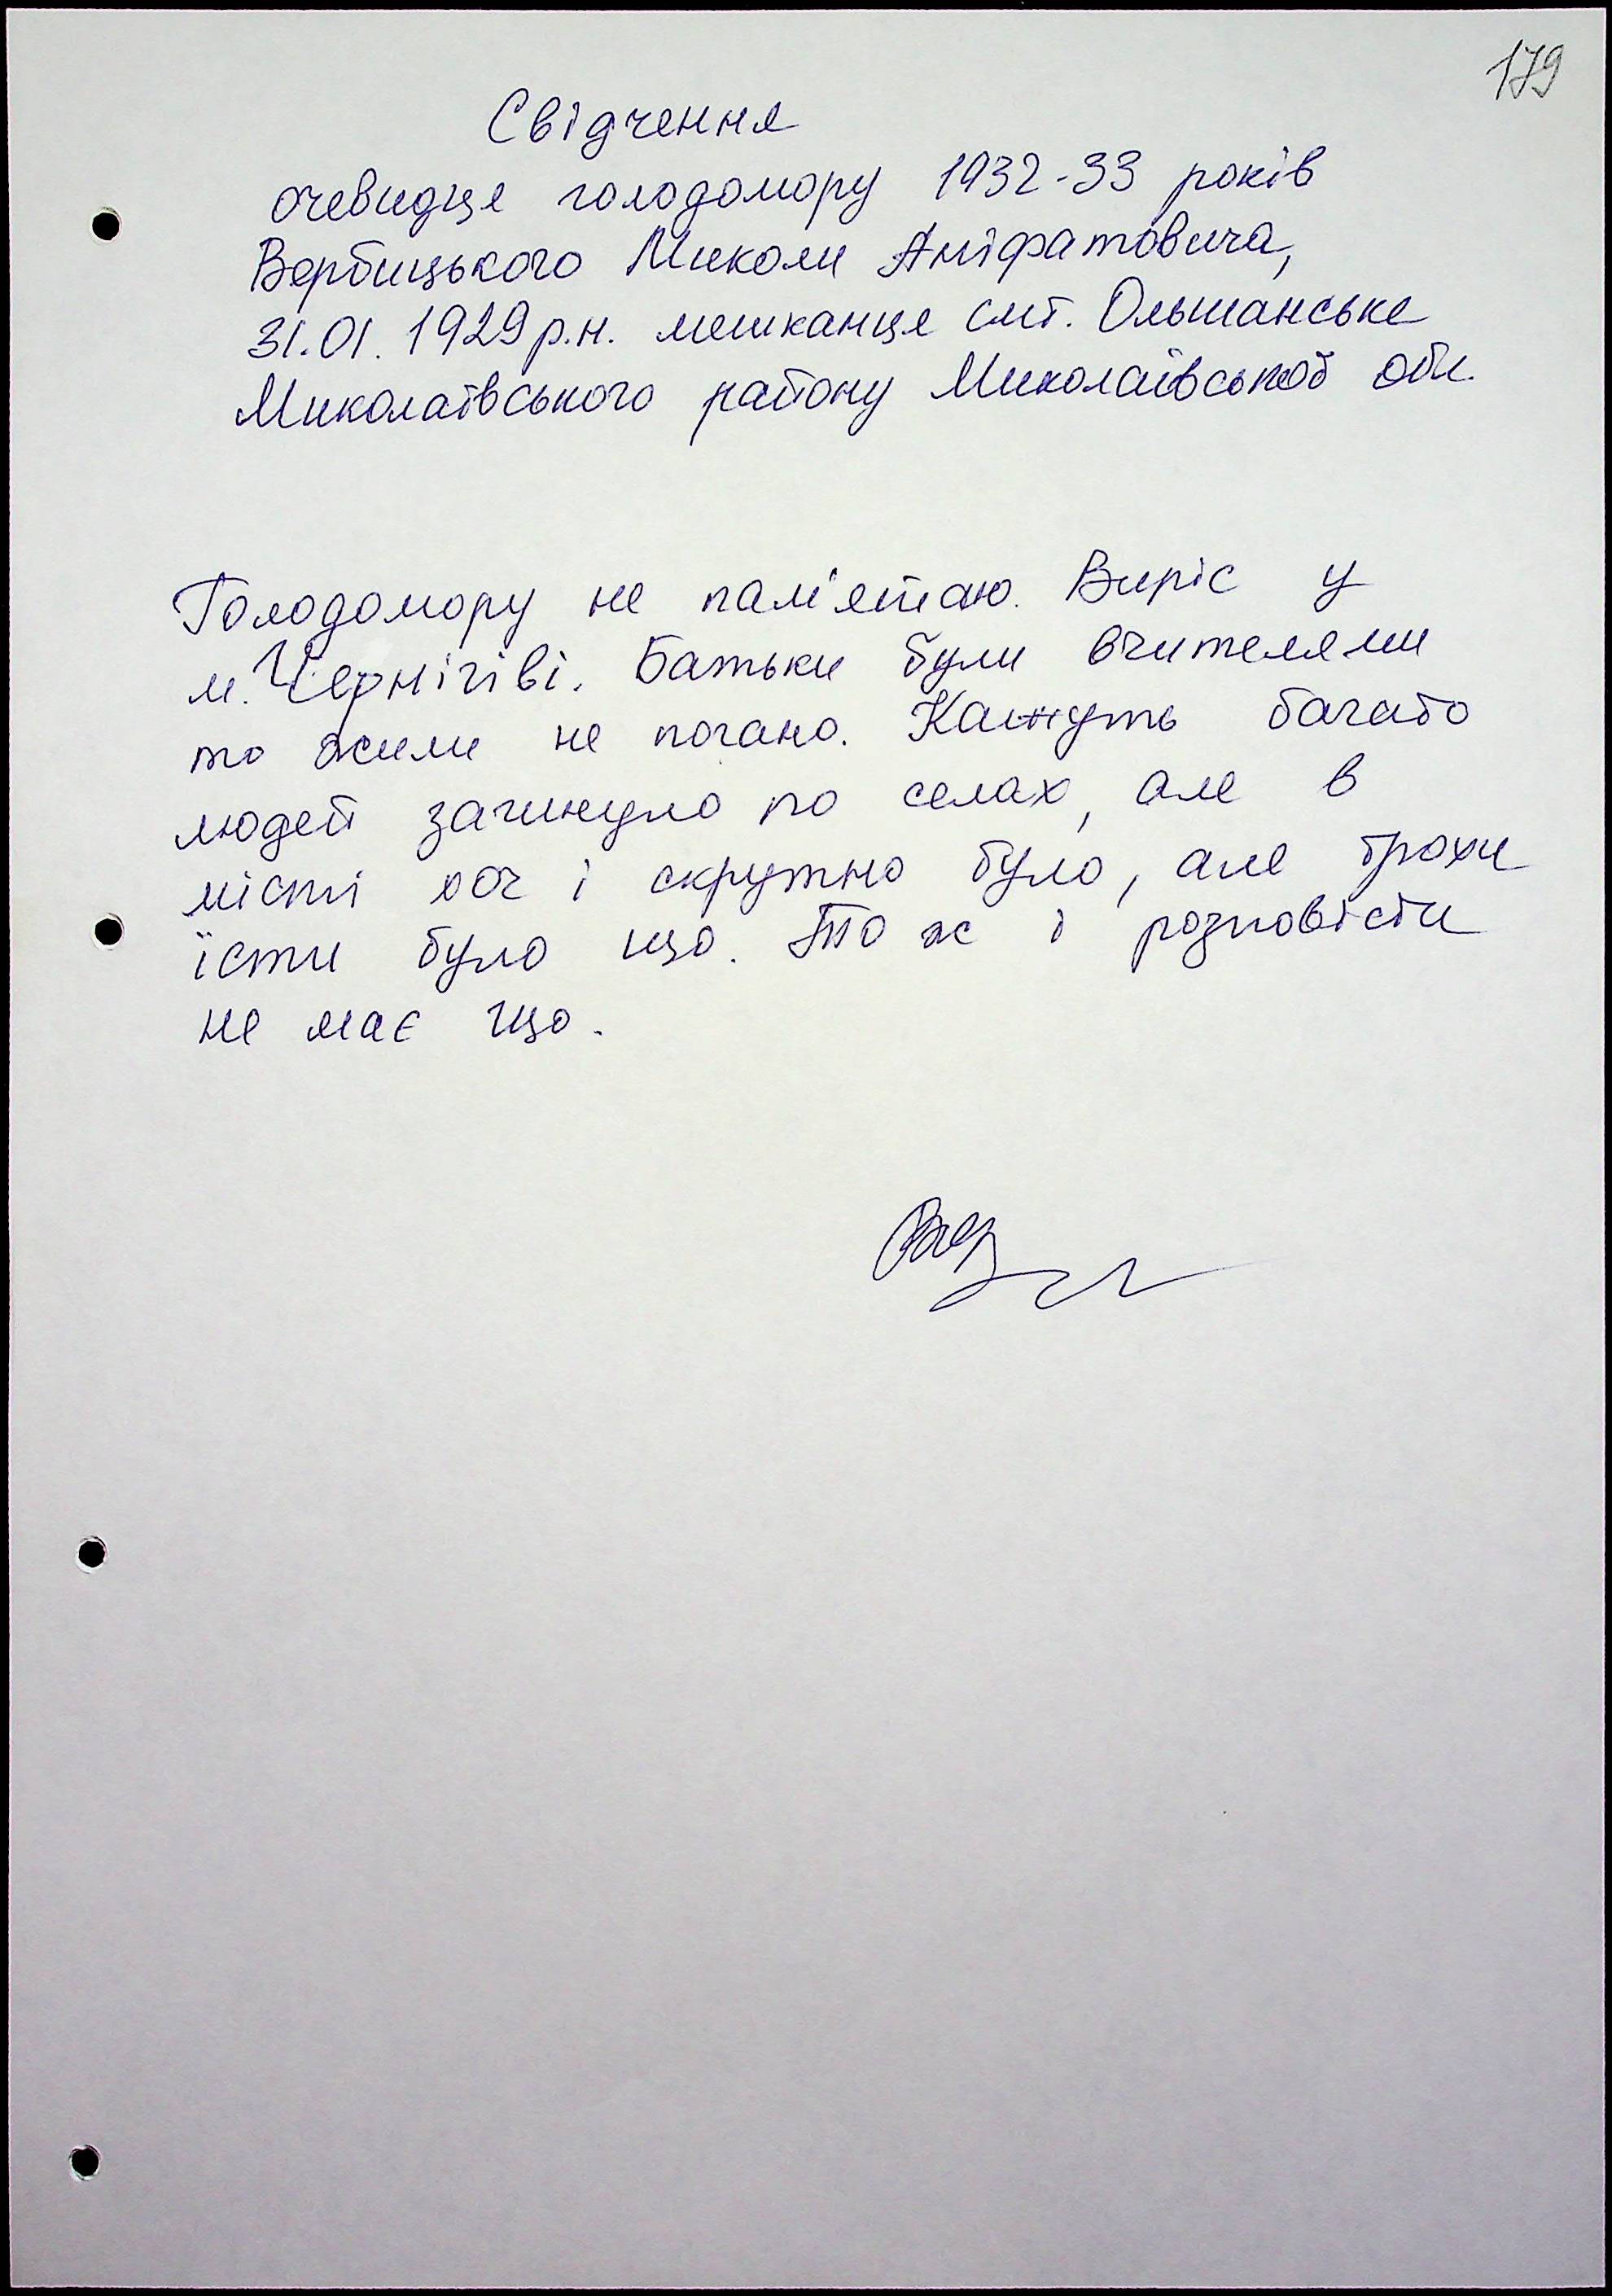 179
Свідчення
очевидця голодомору 1932-33 років
Вербицького Миколи Аміфатовича,
31.01.1929 р.н. мешканця смт. Ольшанське
Миколаївського району Миколаївської обл.
Голодомору не пам'ятаю. Виріс у
м. Чернігіві. Батьки були вчителями
то жили не погано. Кажуть багато
людей загинуло по селах, але в
місті хоч і скрутно було, але трохи
їсти було що. То ж і розповісти
не має що.